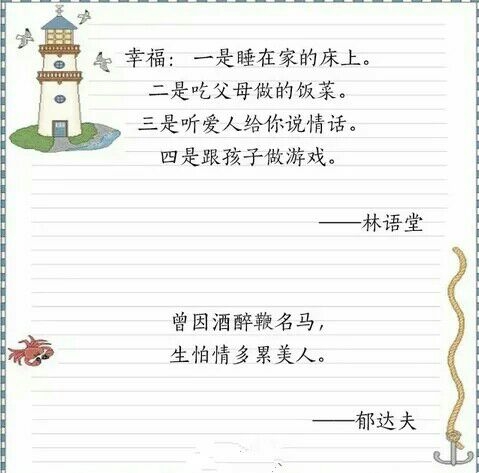 幸福： 一是睡在家的床上。
二是吃父母做的饭菜。
三是听爱人给你说情话。
四是跟孩子做游戏。
——林语堂
曾因酒醉鞭名马，
生怕情多累美人。
——郁达夫